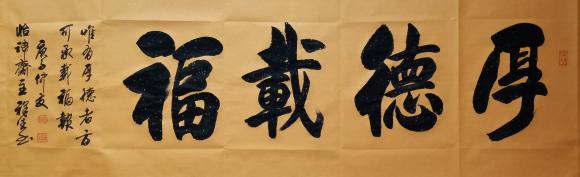 厚德載福
唯有厚德者方
可承载福報
庚子仲夏
怡神齋主